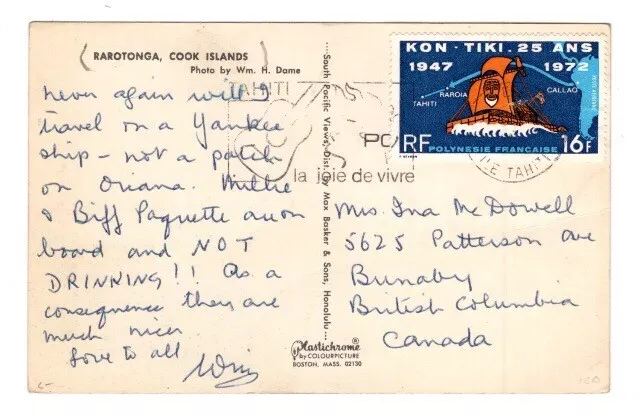 RAROTONGA, COOK ISLANDS
Photo by Wm. H. Dame
never again will I
travel on a Yankee
ship - not a patch
on Oriana. Millie
& Biff Paquette are on
board and NOT
DRINKING!! As a
consequence they are
much nicer
Love to all
South Pacific Views, Dist. by Max Basker & Sons, Honolulu
Plastichrome®
by COLOURPICTURE
BOSTON, MASS. 02130
KON-TIKI. 25 ANS
1947 1972
TAHITI
RAROIA
CALLAO
RF
POLYNESIE FRANCAISE
16F
TAHITI
la joie de vivre
ILE TAHITI
Mrs. Ina McDowell
5625 Patterson Ave
Bunaby
British Columbia
Canada